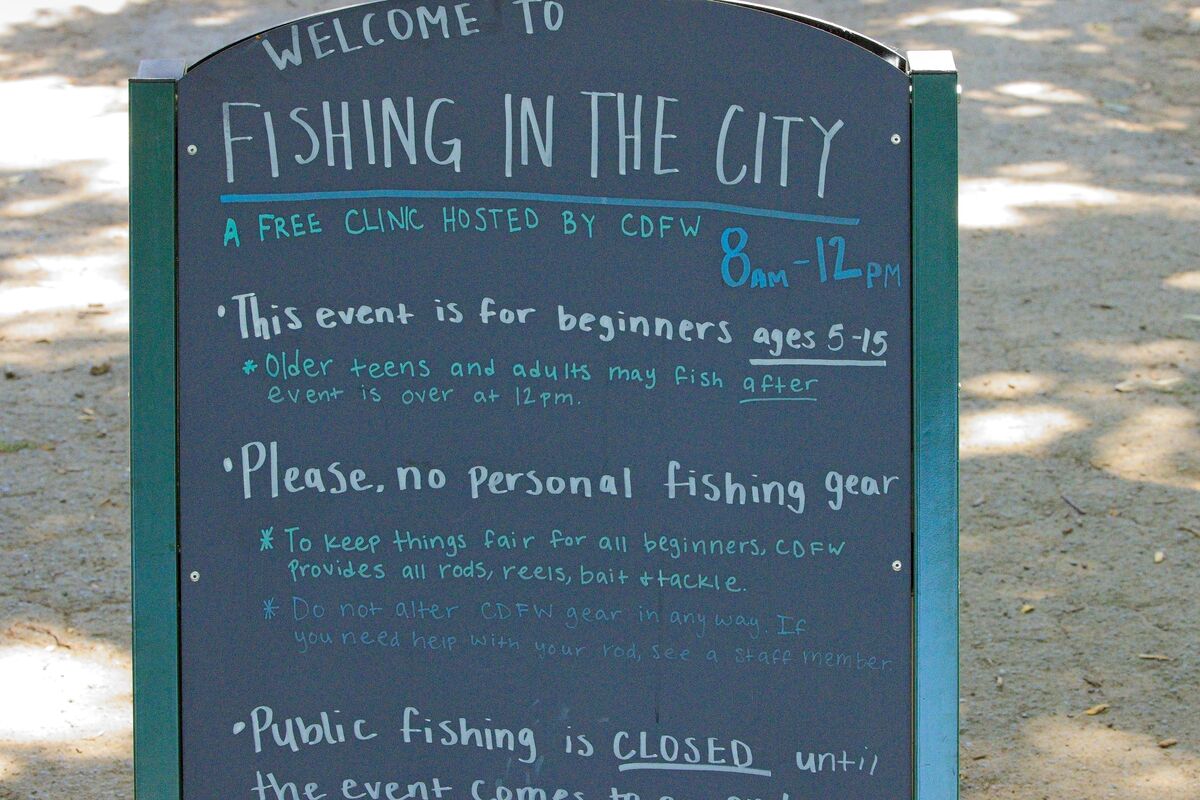 WELCOME TO
FISHING IN THE CITY
A FREE CLINIC HOSTED BY CDFW
8AM-12PM
•This event is for beginners ages 5-15
* Older teens and adults may fish after
event is over at 12pm.
•Please, no personal fishing gear
* To keep things fair for all beginners, CDFW
provides all rods, reels, bait & tackle.
* Do not alter CDFW gear in any way. If
you need help with your rod, see a staff member.
•Public fishing is CLOSED until
the event comes to